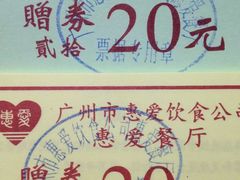 贈券20元
贰拾
票据专用章
惠爱
广州市惠爱饮食公司
惠爱餐厅
贈券20